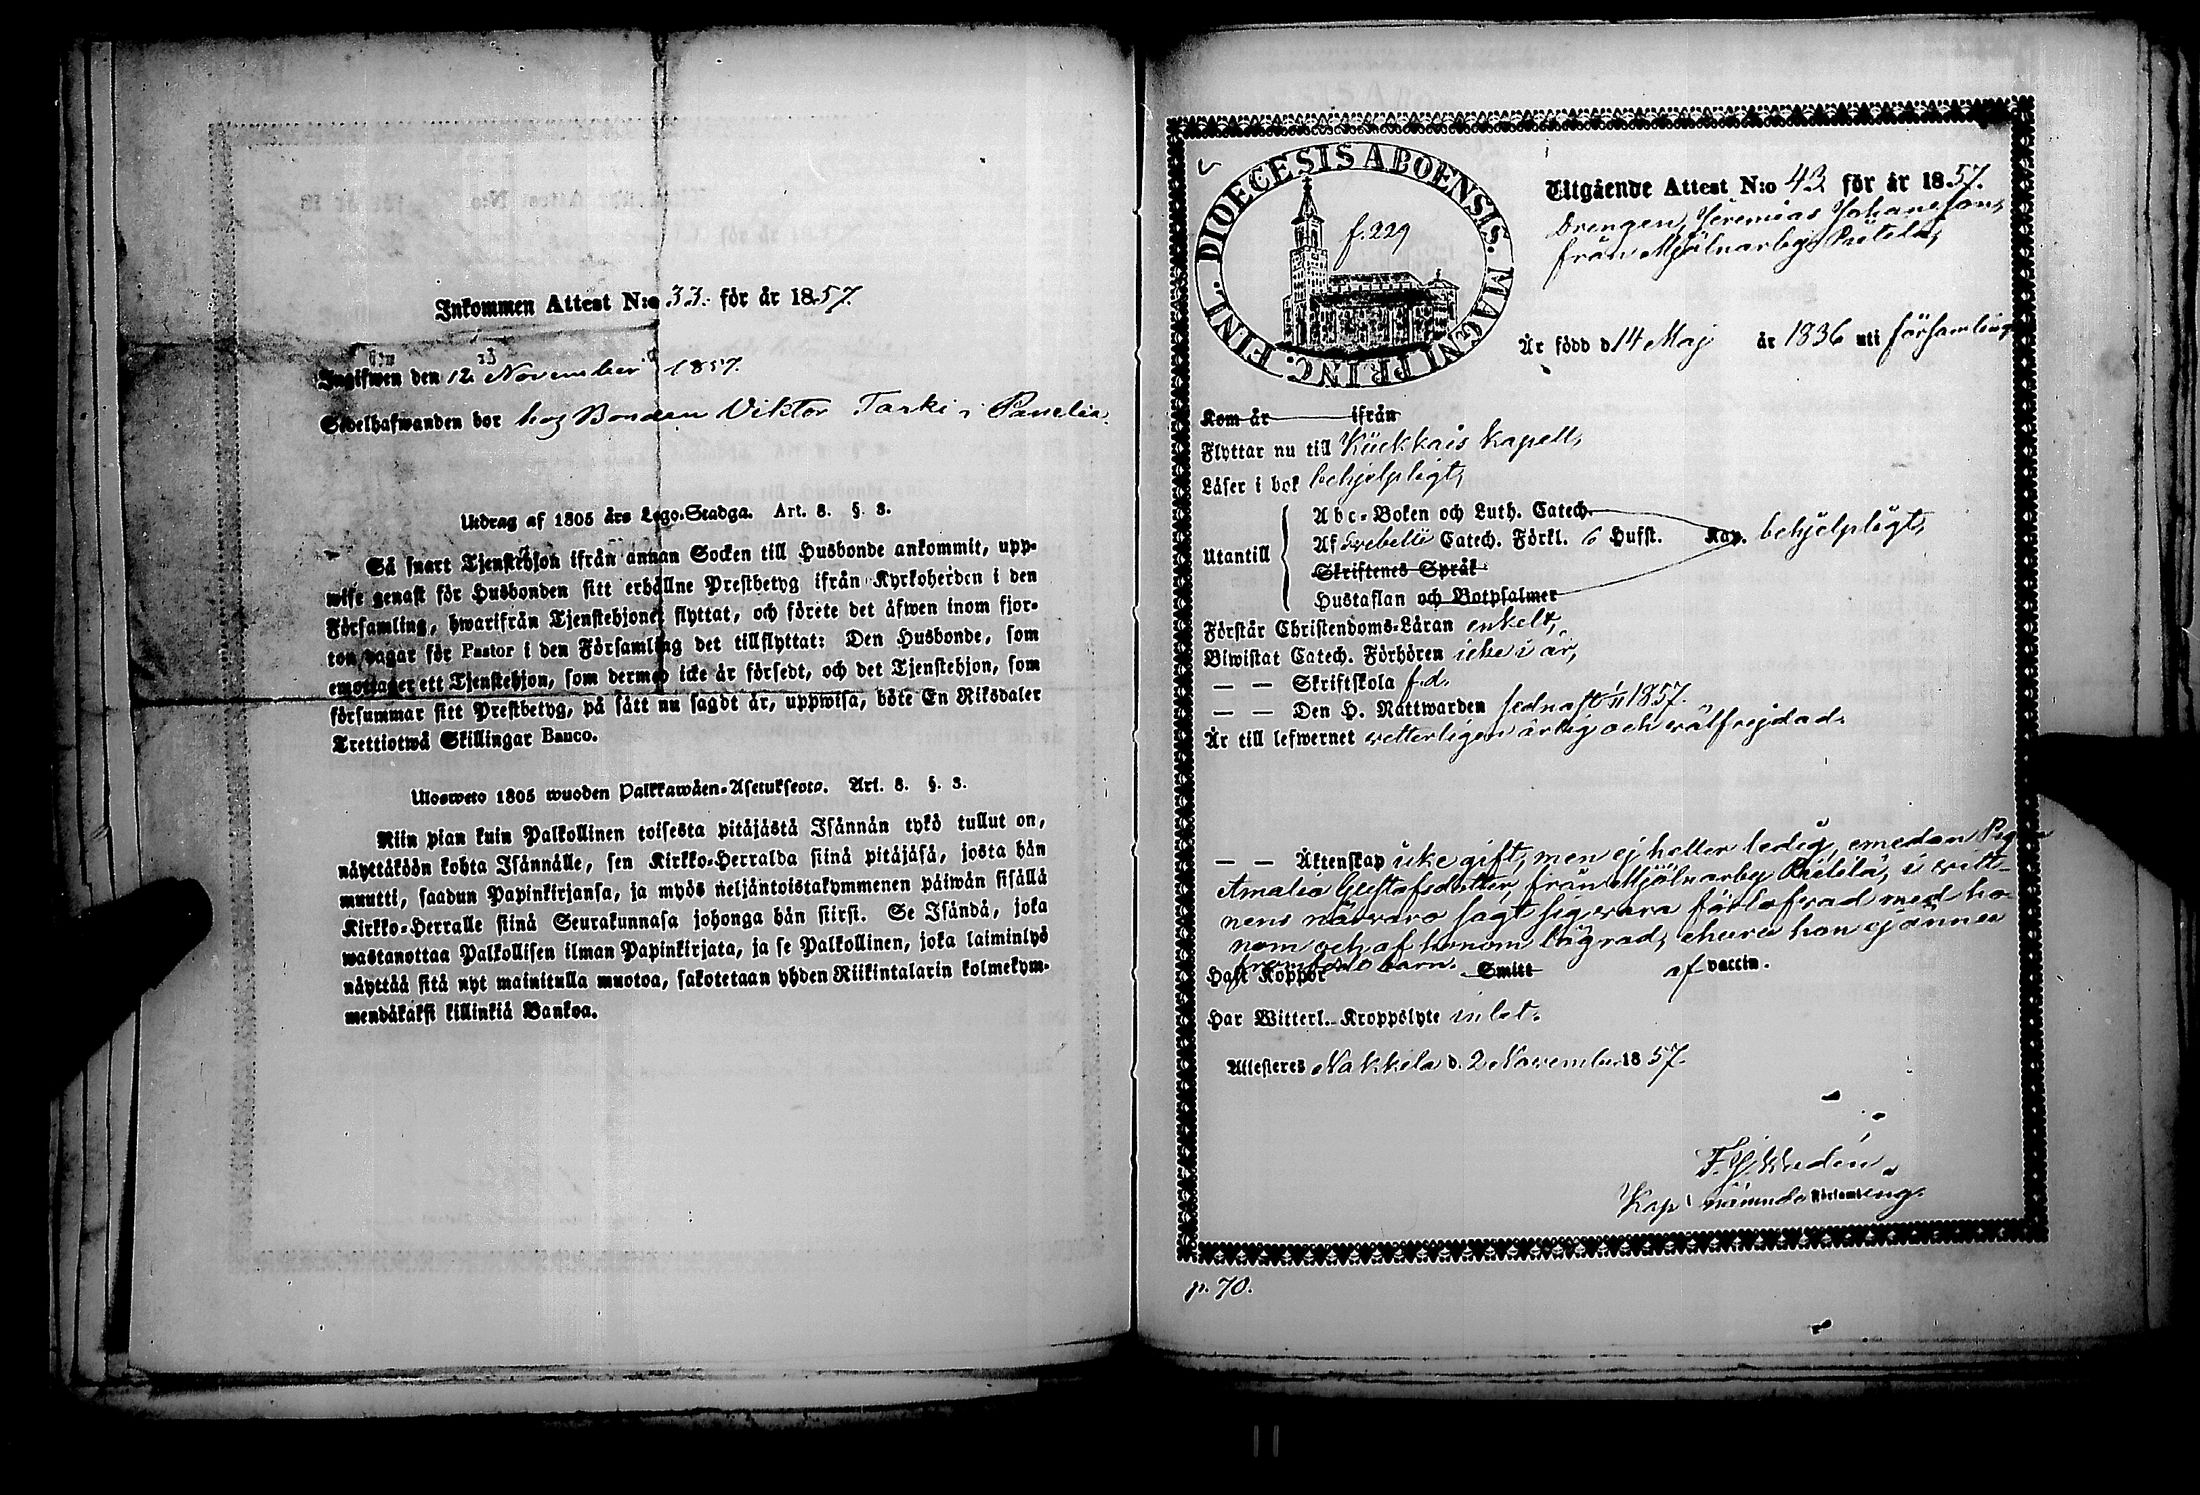 Inkommen Attest N:o 33. för år 1857.
Ingifwen den 12 November 1857.
Sedelhafwanden bor hoz Bonden Viktor Tarki i Panelia.
Utdrag af 1805 års Lego-Stadga. Art. 8. §. 3.
Så snart Tjenstehjon ifrån annan Socken till Husbonde ankommit, upp-
wise genast för Husbonden sitt erhållne Prestbetyg ifrån Kyrkoherden i den
Församling, hwarifrån Tjenstehjonet flyttat, och förete det äfwen inom fjor-
ton dagar för Pastor i den Församling det tillflyttat: Den Husbonde, som
emottager ett Tjenstehjon, som dermed icke är försedt, och det Tjenstehjon, som
försummar sitt Prestbetyg, på sätt nu sagdt är, uppwisa, böte En Riksdaler
Trettiotwå Skillingar Banco.
Ulosweto 1805 wuoden Palkkawäen-Asetuksesta. Art. 8. §. 3.
Niin pian kuin Palkollinen toisesta pitäjästä Isännän tykö tullut on,
näyttäköön kohta Isännälle, sen Kirkko-Herralda siinä pitäjäsä, josta hän
muutti, saadun Papinkirjansa, ja myös neljäntoistakymmenen päiwän sisällä
Kirkko-Herralle siinä Seurakunnasa johonga hän siirsi. Se Isändä, joka
wastanottaa Palkollisen ilman Papinkirjata, ja se Palkollinen, joka laiminlyö
näyttää sitä nyt mainitulla muotoa, sakotetaan yhden Riikintalarin kolmekym-
mendäkaksi killinkiä Bankoa.
DIOECESIS ABOENSIS. MAGNI PRINC. FINL.
f. 229
Utgående Attest N:o 43 för år 1857.
Drengen, Jeremias Johansson,
från Mjölnarby Pietilä,
Är född d 14 Maj år 1836 uti församling
Kom år ifrån
Flyttar nu till Kiukkais kapell,
Läser i bok behjelpligt,
Utantill
Abc-Boken och Luth. Catech.
Af Swebelii Catech. Förkl. 6 Hufst. Kap. behjelpligt,
Skriftenes Språk
Hustaflan och Botpsalmer
Förstår Christendoms-Läran enkelt,
Biwistat Catech. Förhören icke i år,
— — Skriftskola f.d.
— — Den H. Nattwarden sednast 1/11 1857.
Är till lefwernet vetterligen ärlig och wälfrejdad.
— — Äktenskap icke gift, men ej heller ledig, emedan Pigan
Amalia Gustafsdotter, från Mjölnarby Pietilä, i vitt-
nens närvaro sagt sig vara förlofvad med ho-
nom och af honom lägrad, ehuru hon ej ännu
barn.
Haft Koppor Smitt af vaccin.
Har Witterl. Kroppslyte intet.
Attesteras Nakkila d. 2 November 1857.
Kap i nämnde Församling.
p. 70.